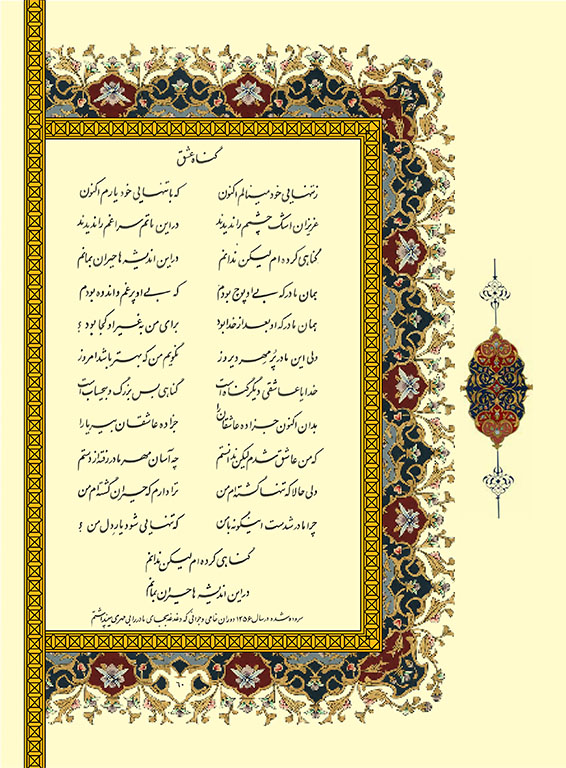 گناه عشق
ز تنهایی خود مینالم اکنون که با تنهایی خود یارم اکنون
عزیزان اشک چشمم را ندیدند در این ماتم سرا غم را ندیدند
گناهی کرده ام لیکن ندانم در این اندیشه ها حیران بمانم
همان مادر که بی او پوچ بودم که بی او پر غم و اندوه بودم
همان مادر که او بعد از خدا بود برای من بغیر او کجا بود ؟
ولی این مادر پُر مهر دیروز نگویم من که بهتر باشد امروز
خدایا عاشقی دیگر گناه است گناهی بس بزرگ و بیحساب است
بدان اکنون جزا ده عاشقان را جزا ده عاشقان بیریا را
که من عاشق شدم لیکن ندانستم چه آسان مهر مادر رفته از دستم
ولی حالا که تنها گشته ام من ترا دارم که حیران گشته ام من
چرا مادر شدست اینگونه با من که تنهایی شود یار دل من ؟
گناهی کرده ام لیکن ندانم
در این اندیشه ها حیران بمانم
سروده شده در سال ۱۳۵۶ دوران خامی و جوانی که دغدغه بیجای مادر را بی مهری میپنداشتم